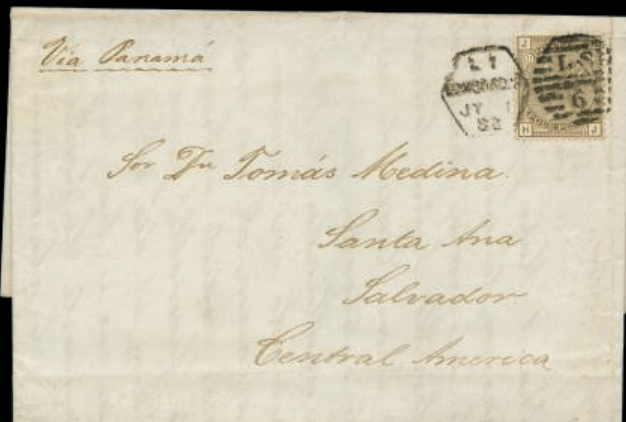 Via Panamá
L 1
LOMBARD.S
JY 1
82
L.S
6
J
H J
Sor Dn Tomás Medina.
Santa Ana
Salvador
Central America